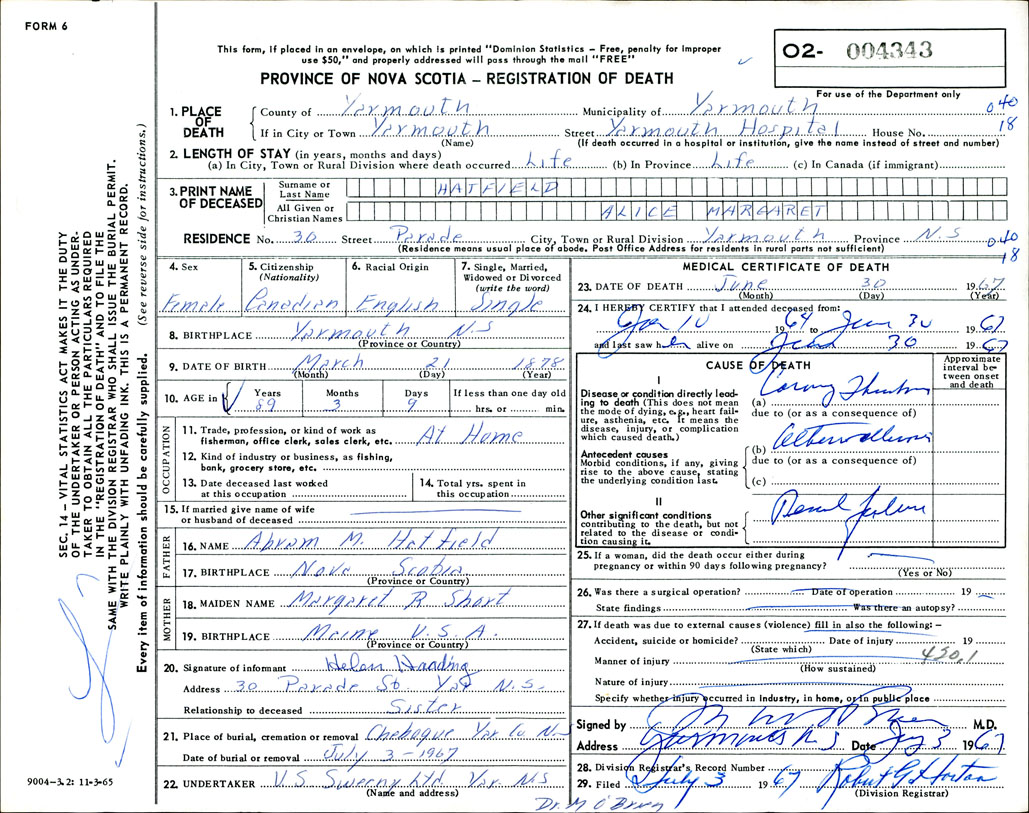 FORM 6
This form, if placed in an envelope, on which is printed "Dominion Statistics - Free, penalty for improper
use $50," and properly addressed will pass through the mail "FREE"
O2- 004343
PROVINCE OF NOVA SCOTIA - REGISTRATION OF DEATH
For use of the Department only
1. PLACE OF DEATH
County of Yarmouth Municipality of Yarmouth 040
If in City or Town Yarmouth Street Yarmouth Hospital House No. 18
(Name) (If death occurred in a hospital or institution, give the name instead of street and number)
2. LENGTH OF STAY (in years, months and days)
(a) In City, Town or Rural Division where death occurred Life (b) In Province Life (c) In Canada (if immigrant)
3. PRINT NAME OF DECEASED
Surname or Last Name HATFIELD
All Given or Christian Names ALICE MARGARET
RESIDENCE No. 30 Street Parade City, Town or Rural Division Yarmouth Province N.S 040
(Residence means usual place of abode. Post Office Address for residents in rural parts not sufficient) 18
4. Sex
Female
5. Citizenship
(Nationality)
Canadian
6. Racial Origin
English
7. Single, Married,
Widowed or Divorced
(write the word)
Single
8. BIRTHPLACE Yarmouth N.S
(Province or Country)
9. DATE OF BIRTH March 21 1878
(Month) (Day) (Year)
10. AGE in Years Months Days If less than one day old
89 3 9 hrs. or min.
OCCUPATION
11. Trade, profession, or kind of work as
fisherman, office clerk, sales clerk, etc. At Home
12. Kind of industry or business, as fishing,
bank, grocery store, etc.
13. Date deceased last worked
at this occupation
14. Total yrs. spent in
this occupation
15. If married give name of wife
or husband of deceased
FATHER
16. NAME Abram M. Hatfield
17. BIRTHPLACE Nova Scotia
(Province or Country)
MOTHER
18. MAIDEN NAME Margaret R Short
19. BIRTHPLACE Maine U.S.A.
(Province or Country)
20. Signature of informant Helen Harding
Address 30 Parade St. Yar N.S.
Relationship to deceased Sister
21. Place of burial, cremation or removal Chebogue Yar Co NS
Date of burial or removal July 3-1967
22. UNDERTAKER V.S Sweeny Ltd. Yar. NS
(Name and address)
MEDICAL CERTIFICATE OF DEATH
23. DATE OF DEATH June 30 1967
(Month) (Day) (Year)
24. I HEREBY CERTIFY that I attended deceased from:
Jan 10 1964 to June 30 1967
and last saw her alive on 30 1967
CAUSE OF DEATH
Approximate
interval be-
tween onset
and death
I
Disease or condition directly lead-
ing to death (This does not mean
the mode of dying, e.g., heart fail-
ure, asthenia, etc. It means the
disease, injury, or complication
which caused death.)
(a)
due to (or as a consequence of)
Antecedent causes
Morbid conditions, if any, giving
rise to the above cause, stating
the underlying condition last.
(b)
due to (or as a consequence of)
(c)
II
Other significant conditions
contributing to the death, but not
related to the disease or condi-
tion causing it.
Renal Failure
25. If a woman, did the death occur either during
pregnancy or within 90 days following pregnancy?
(Yes or No)
26. Was there a surgical operation? Date of operation 19
State findings Was there an autopsy?
27. If death was due to external causes (violence) fill in also the following: -
Accident, suicide or homicide? Date of injury 19
(State which) 450.1
Manner of injury
(How sustained)
Nature of injury
Specify whether injury occurred in industry, in home, or in public place
Signed by M.D.
Address Yarmouth N S Date 3 1967
28. Division Registrar's Record Number
29. Filed July 3 1967 Robert G Horton
(Division Registrar)
Dr. M O'Brien
SEC. 14 - VITAL STATISTICS ACT MAKES IT THE DUTY
OF THE UNDERTAKER OR PERSON ACTING AS UNDER-
TAKER TO OBTAIN ALL THE PARTICULARS REQUIRED
IN THE "REGISTRATION OF DEATH" AND TO FILE THE
SAME WITH THE DIVISION REGISTRAR WHO SHALL ISSUE THE BURIAL PERMIT.
WRITE PLAINLY WITH UNFADING INK. THIS IS A PERMANENT RECORD.
Every item of information should be carefully supplied. (See reverse side for instructions.)
9004-3.2: 11-3-65